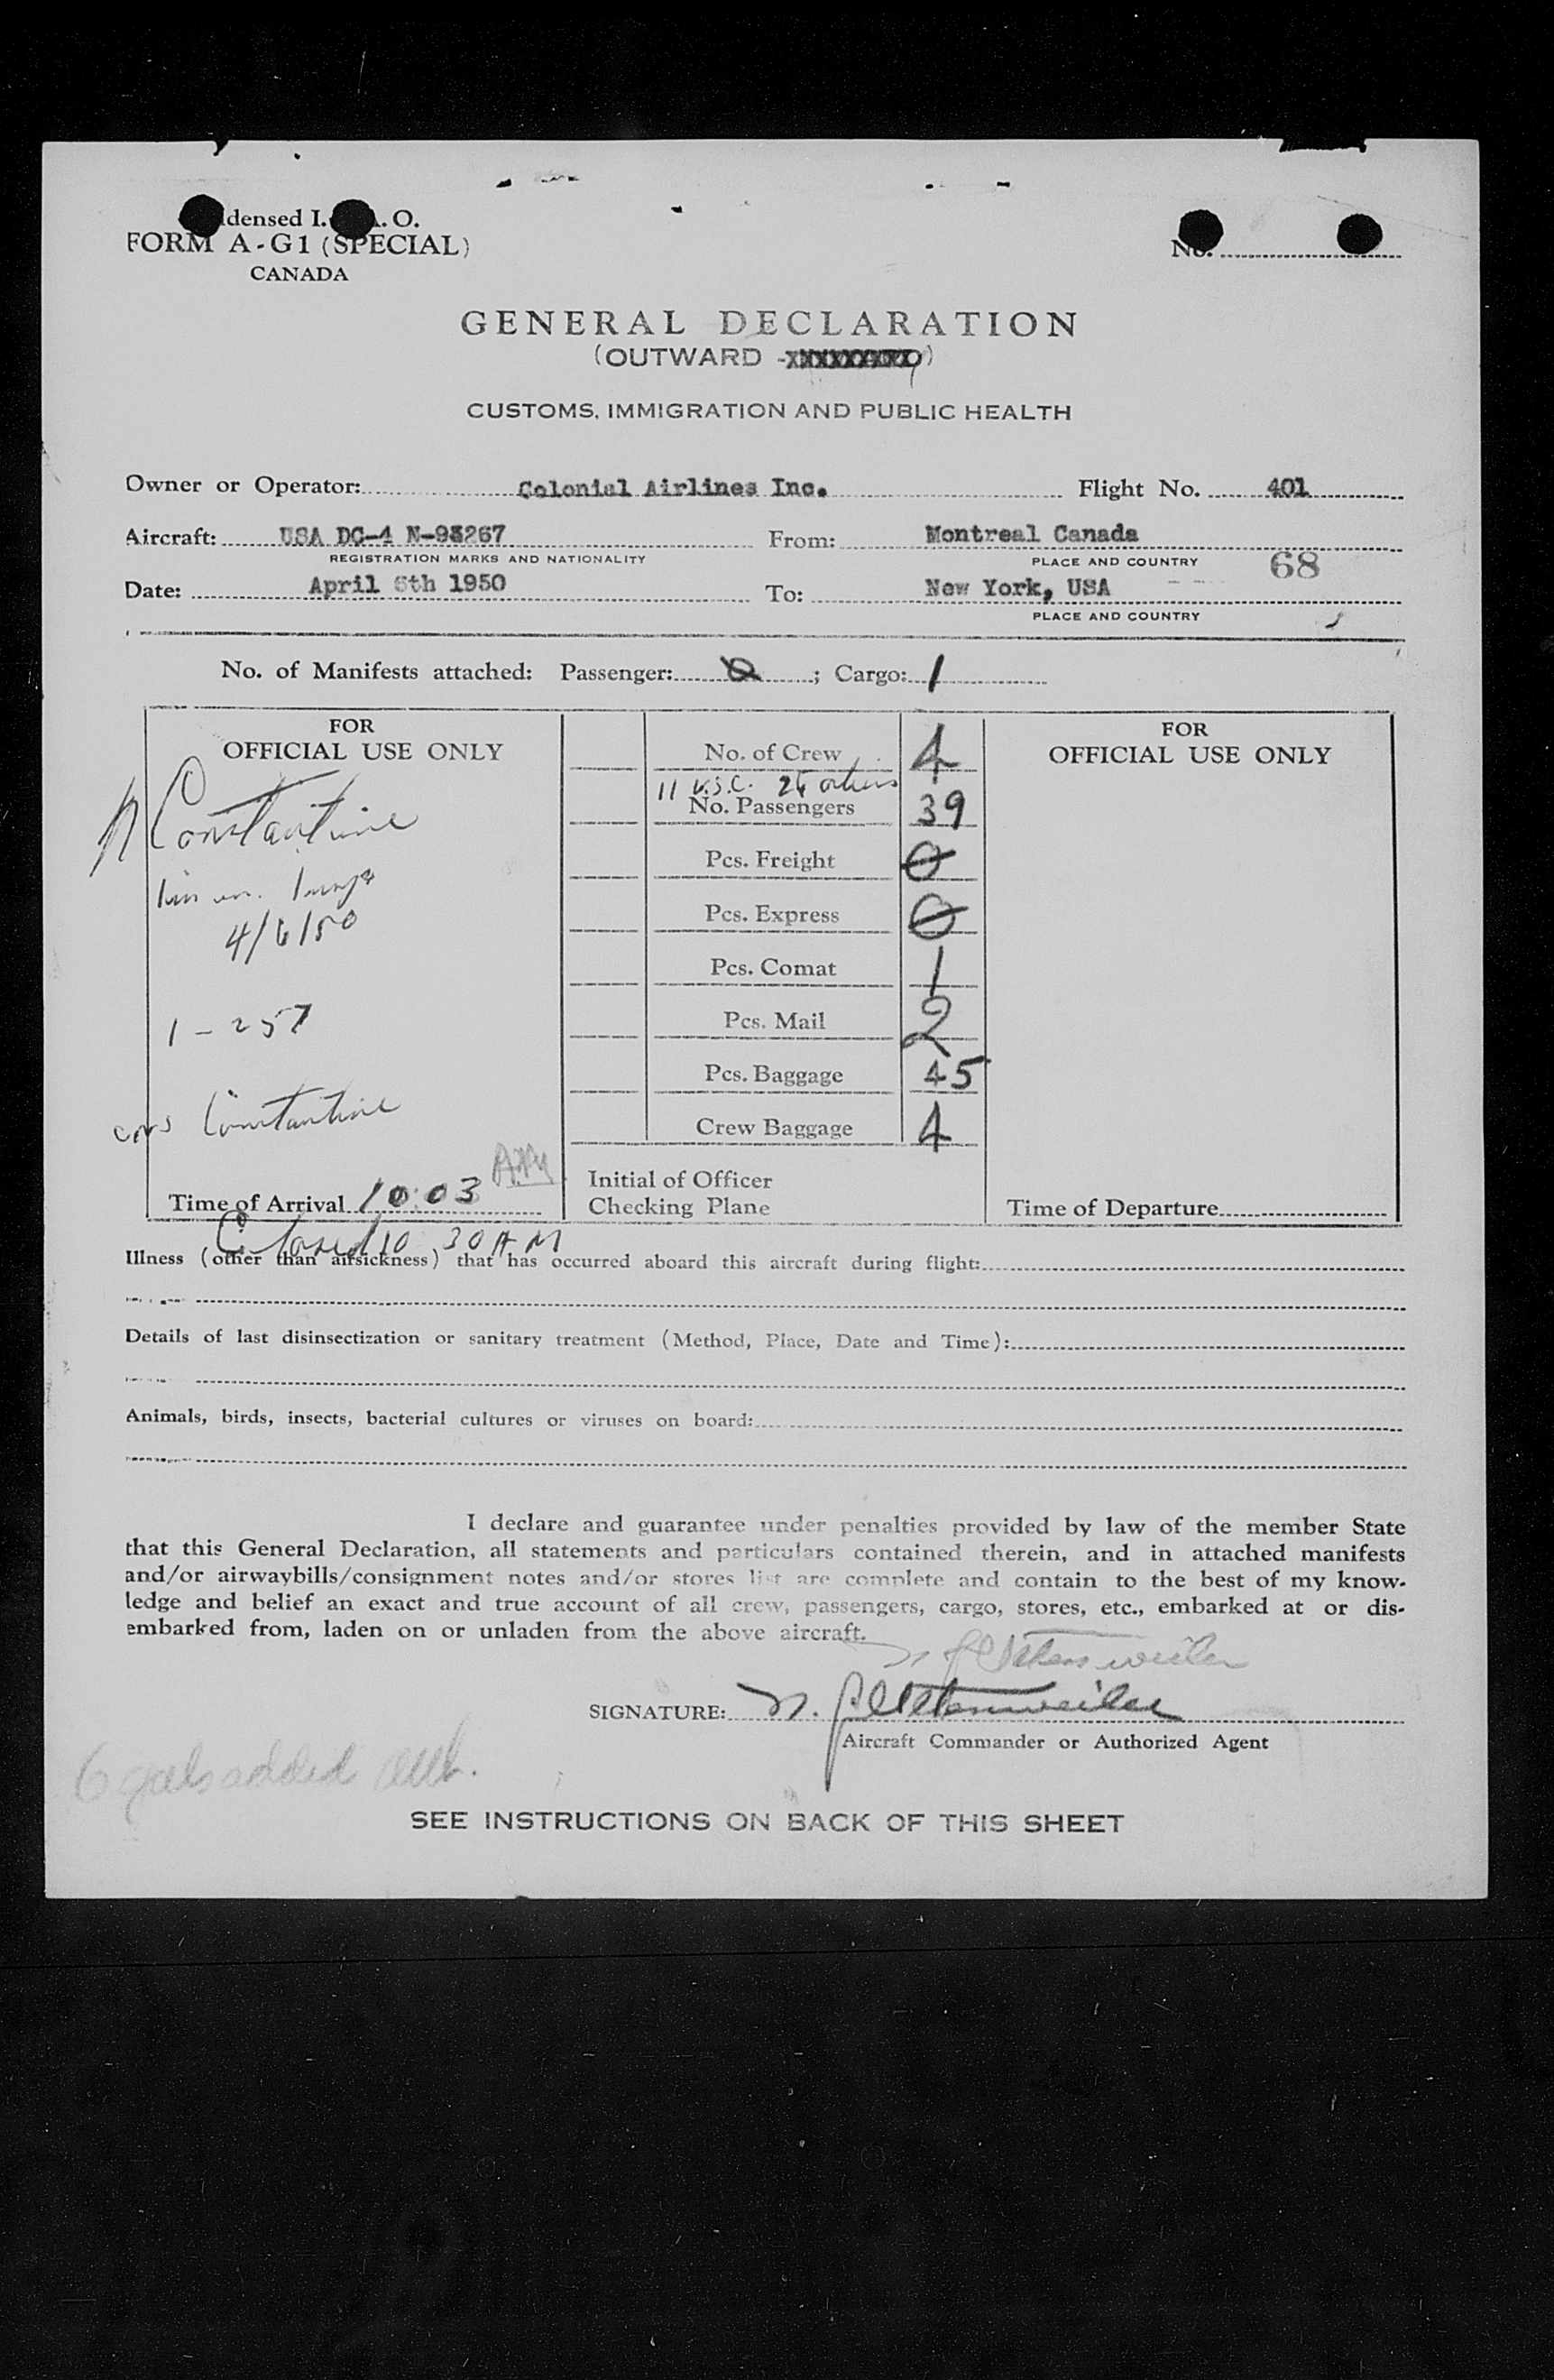 densed I. . O.
FORM A-G1 (SPECIAL)
CANADA
No.
GENERAL DECLARATION
(OUTWARD -XXXXXXXXX)
CUSTOMS, IMMIGRATION AND PUBLIC HEALTH
Owner or Operator: Colonial Airlines Inc. Flight No. 401
Aircraft: USA DC-4 N-93267 From: Montreal Canada
REGISTRATION MARKS AND NATIONALITY PLACE AND COUNTRY 68
Date: April 6th 1950 To: New York, USA
PLACE AND COUNTRY
No. of Manifests attached: Passenger: 0; Cargo: 1
FOR
OFFICIAL USE ONLY
Constantine
4/6/50
1-257
Constantine
Time of Arrival 10:03
No. of Crew 4
11 U.S.C. others
No. Passengers 39
Pcs. Freight 0
Pcs. Express 0
Pcs. Comat 1
Pcs. Mail 2
Pcs. Baggage 45
Crew Baggage 4
Initial of Officer
Checking Plane
FOR
OFFICIAL USE ONLY
Time of Departure
Closed 10 30 AM
Illness (other than airsickness) that has occurred aboard this aircraft during flight:
Details of last disinsectization or sanitary treatment (Method, Place, Date and Time):
Animals, birds, insects, bacterial cultures or viruses on board:
I declare and guarantee under penalties provided by law of the member State
that this General Declaration, all statements and particulars contained therein, and in attached manifests
and/or airwaybills/consignment notes and/or stores list are complete and contain to the best of my know-
ledge and belief an exact and true account of all crew, passengers, cargo, stores, etc., embarked at or dis-
embarked from, laden on or unladen from the above aircraft.
SIGNATURE:
Aircraft Commander or Authorized Agent
6 gals added
SEE INSTRUCTIONS ON BACK OF THIS SHEET